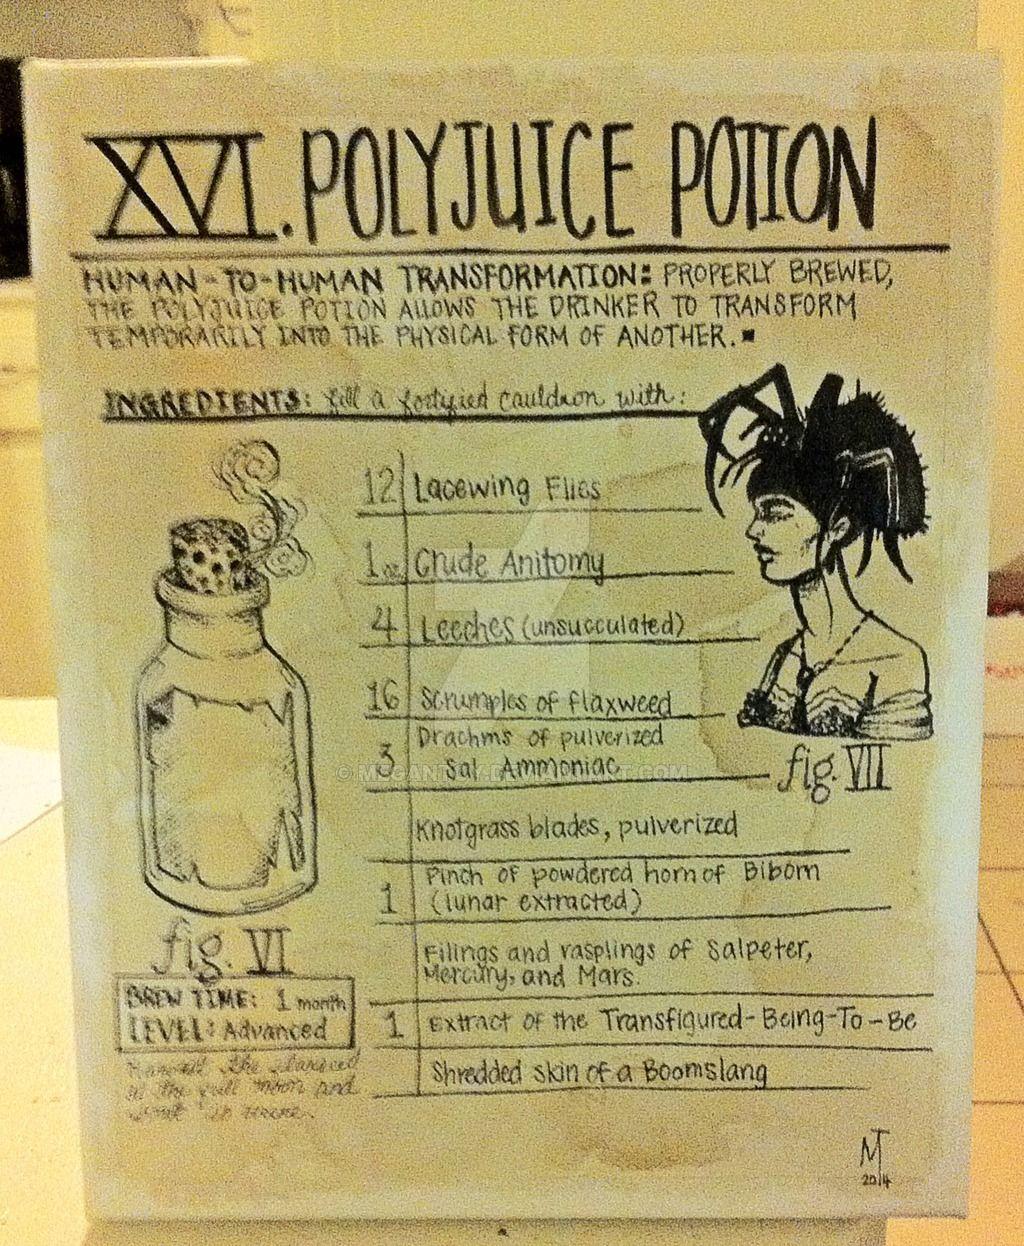 XVI. POLYJUICE POTION
HUMAN-TO-HUMAN TRANSFORMATION: PROPERLY BREWED,
THE POLYJUICE POTION ALLOWS THE DRINKER TO TRANSFORM
TEMPORARILY INTO THE PHYSICAL FORM OF ANOTHER.
INGREDIENTS: fill a fortified cauldron with:
12 Lacewing Flies
1 oz Crude Anitomy
4 Leeches (unsucculated)
16 Scrumples of flaxweed
3 Drachms of pulverized
Sal Ammoniac
Knotgrass blades, pulverized
1 Pinch of powdered horn of Biborn
(lunar extracted)
Filings and rasplings of Salpeter,
Mercury, and Mars.
1 Extract of the Transfigured-Being-To-Be
Shredded skin of a Boomslang
fig. VII
fig. VI
BREW TIME: 1 month
LEVEL: Advanced
the
the full moon and
MT
2014